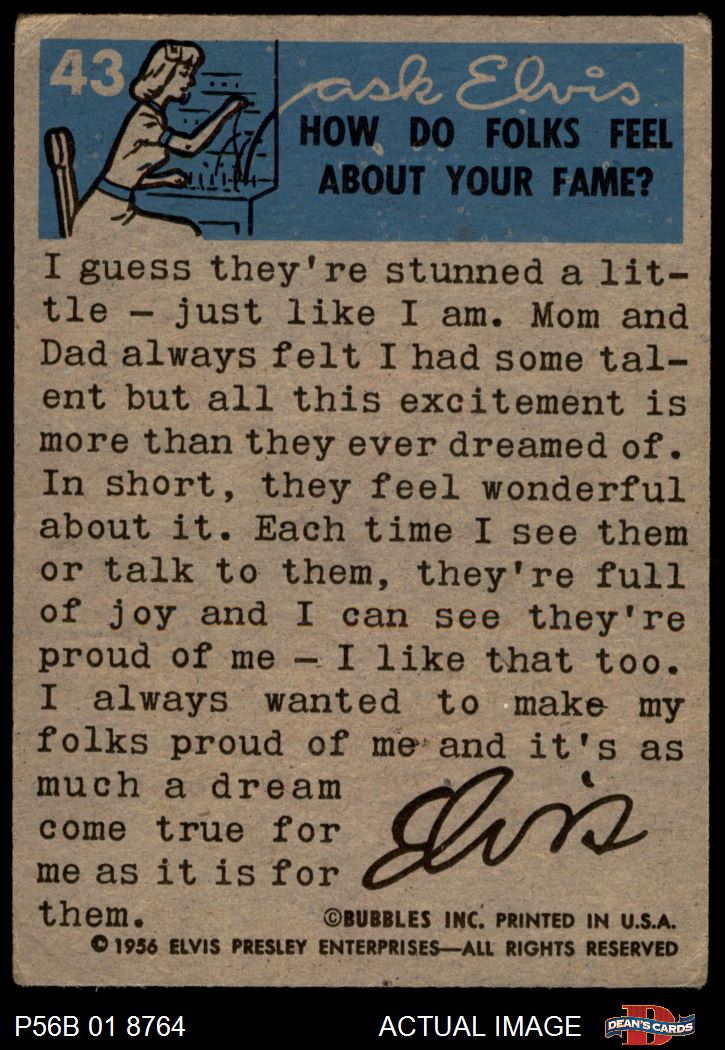 43
ask Elvis
HOW DO FOLKS FEEL
ABOUT YOUR FAME?
I guess they're stunned a lit-
tle — just like I am. Mom and
Dad always felt I had some tal-
ent but all this excitement is
more than they ever dreamed of.
In short, they feel wonderful
about it. Each time I see them
or talk to them, they're full
of joy and I can see they're
proud of me — I like that too.
I always wanted to make my
folks proud of me and it's as
much a dream
come true for
me as it is for
them.
Elvis
©BUBBLES INC. PRINTED IN U.S.A.
© 1956 ELVIS PRESLEY ENTERPRISES—ALL RIGHTS RESERVED
P56B 01 8764
ACTUAL IMAGE
D
DEAN'S CARDS